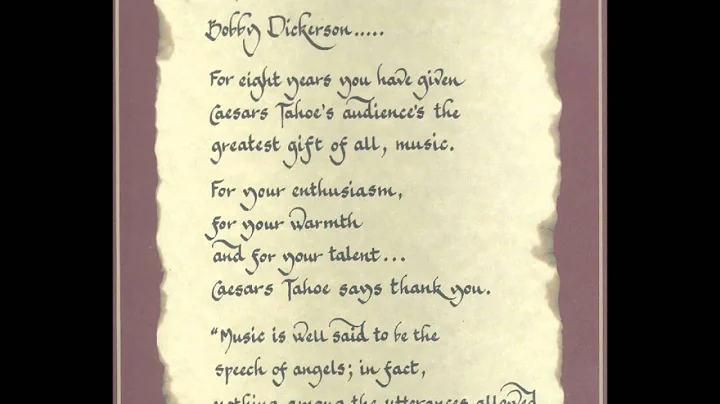 Bobby Dickerson.....
For eight years you have given
Caesars Tahoe's audience's the
greatest gift of all, music.
For your enthusiasm,
for your warmth
and for your talent...
Caesars Tahoe says thank you.
"Music is well said to be the
speech of angels; in fact,
nothing among the utterances allowed